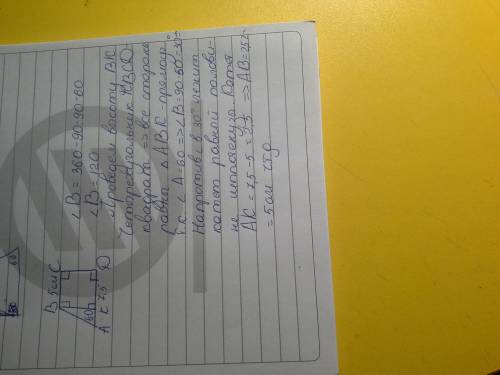 B 5см C
60°
A К 7,5 D
∠B = 360-90-90-60
∠B = 120
Проведем высоту BK
Четырехугольник KBCD
квадрат => все стороны
равны. △ABK - прямоуг.
т.к ∠A = 60 => ∠B = 90-60=30°
Напротив ∠ в 30° лежит
катет равной полови-
не гипотенузы. Катет
AK = 7,5-5 = 2,5 => AB = 2,5·2
= 5см